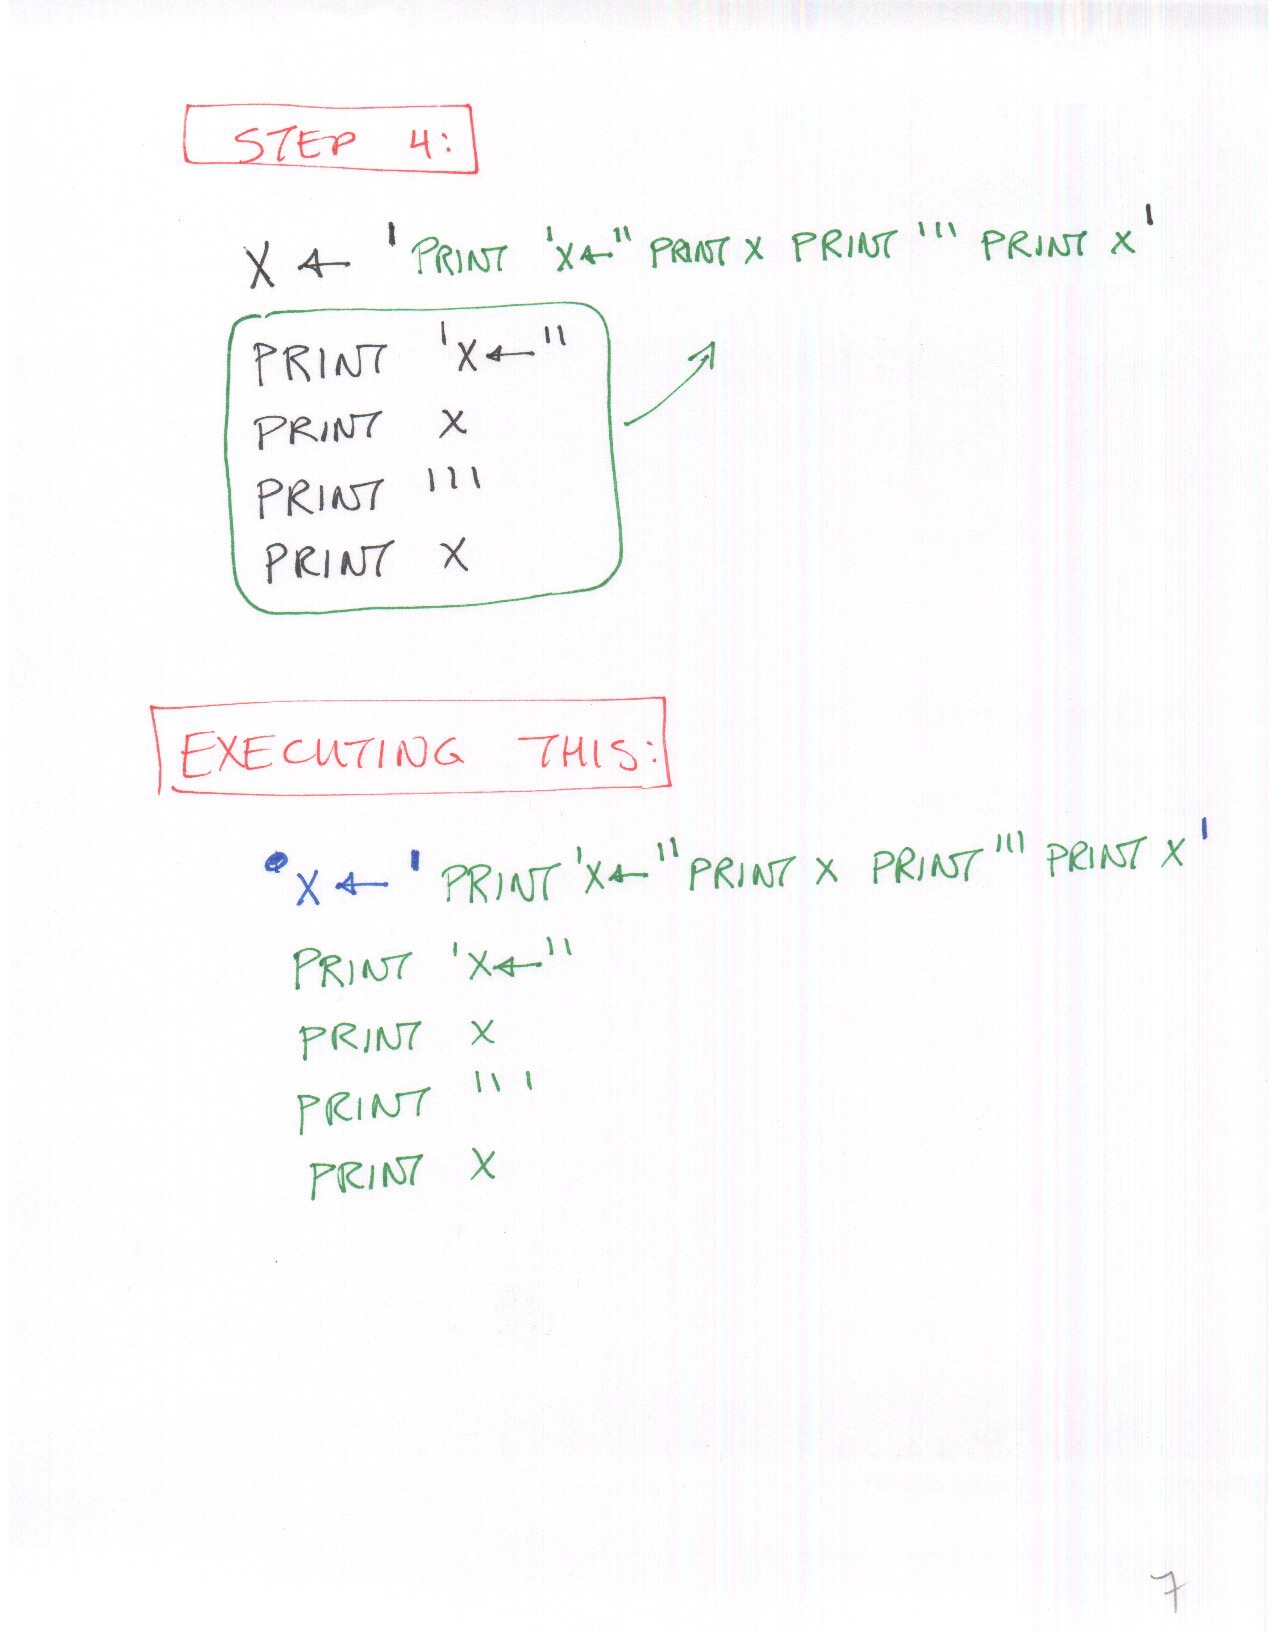 STEP 4:
X ← 'PRINT 'X←'' PRINT X PRINT ''' PRINT X'
PRINT 'X←''
PRINT X
PRINT '''
PRINT X
EXECUTING THIS:
X ← 'PRINT 'X←'' PRINT X PRINT ''' PRINT X'
PRINT 'X←''
PRINT X
PRINT '''
PRINT X
7